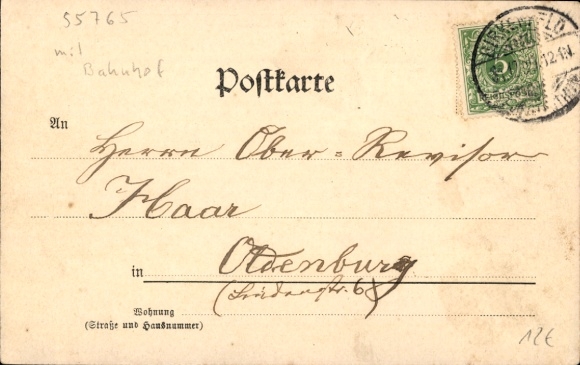 55765
mit
Bahnhof
Postkarte
An
Herrn Ober=Revisor
Haar
in Oldenburg
(Lindenstr. 68)
Wohnung
(Straße und Hausnummer)
12€